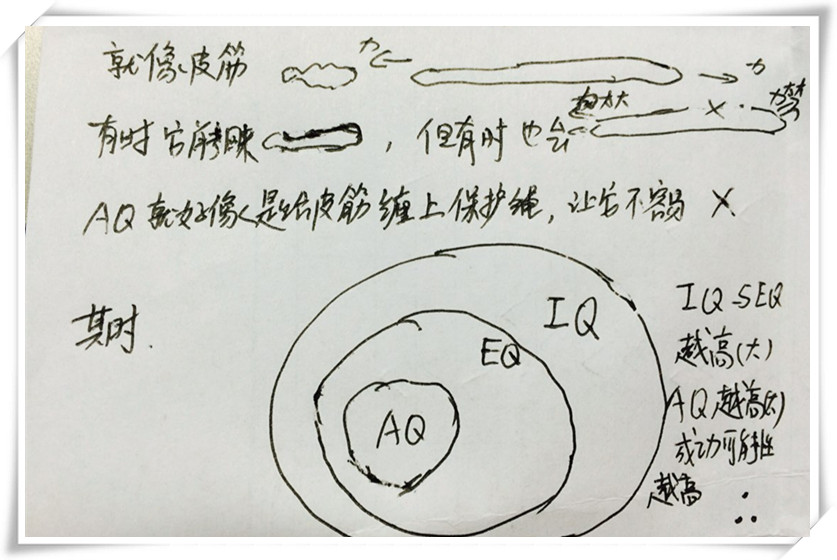 就像皮筋 力 力
有时它能弹回来，但有时也会 力太大 X 力太大
AQ就好像是给皮筋缠上保护绳，让它不容易 X
其时.
IQ
EQ
AQ
IQ与EQ
越高(大)
AQ越高(大)
成功可能性
越高
∴